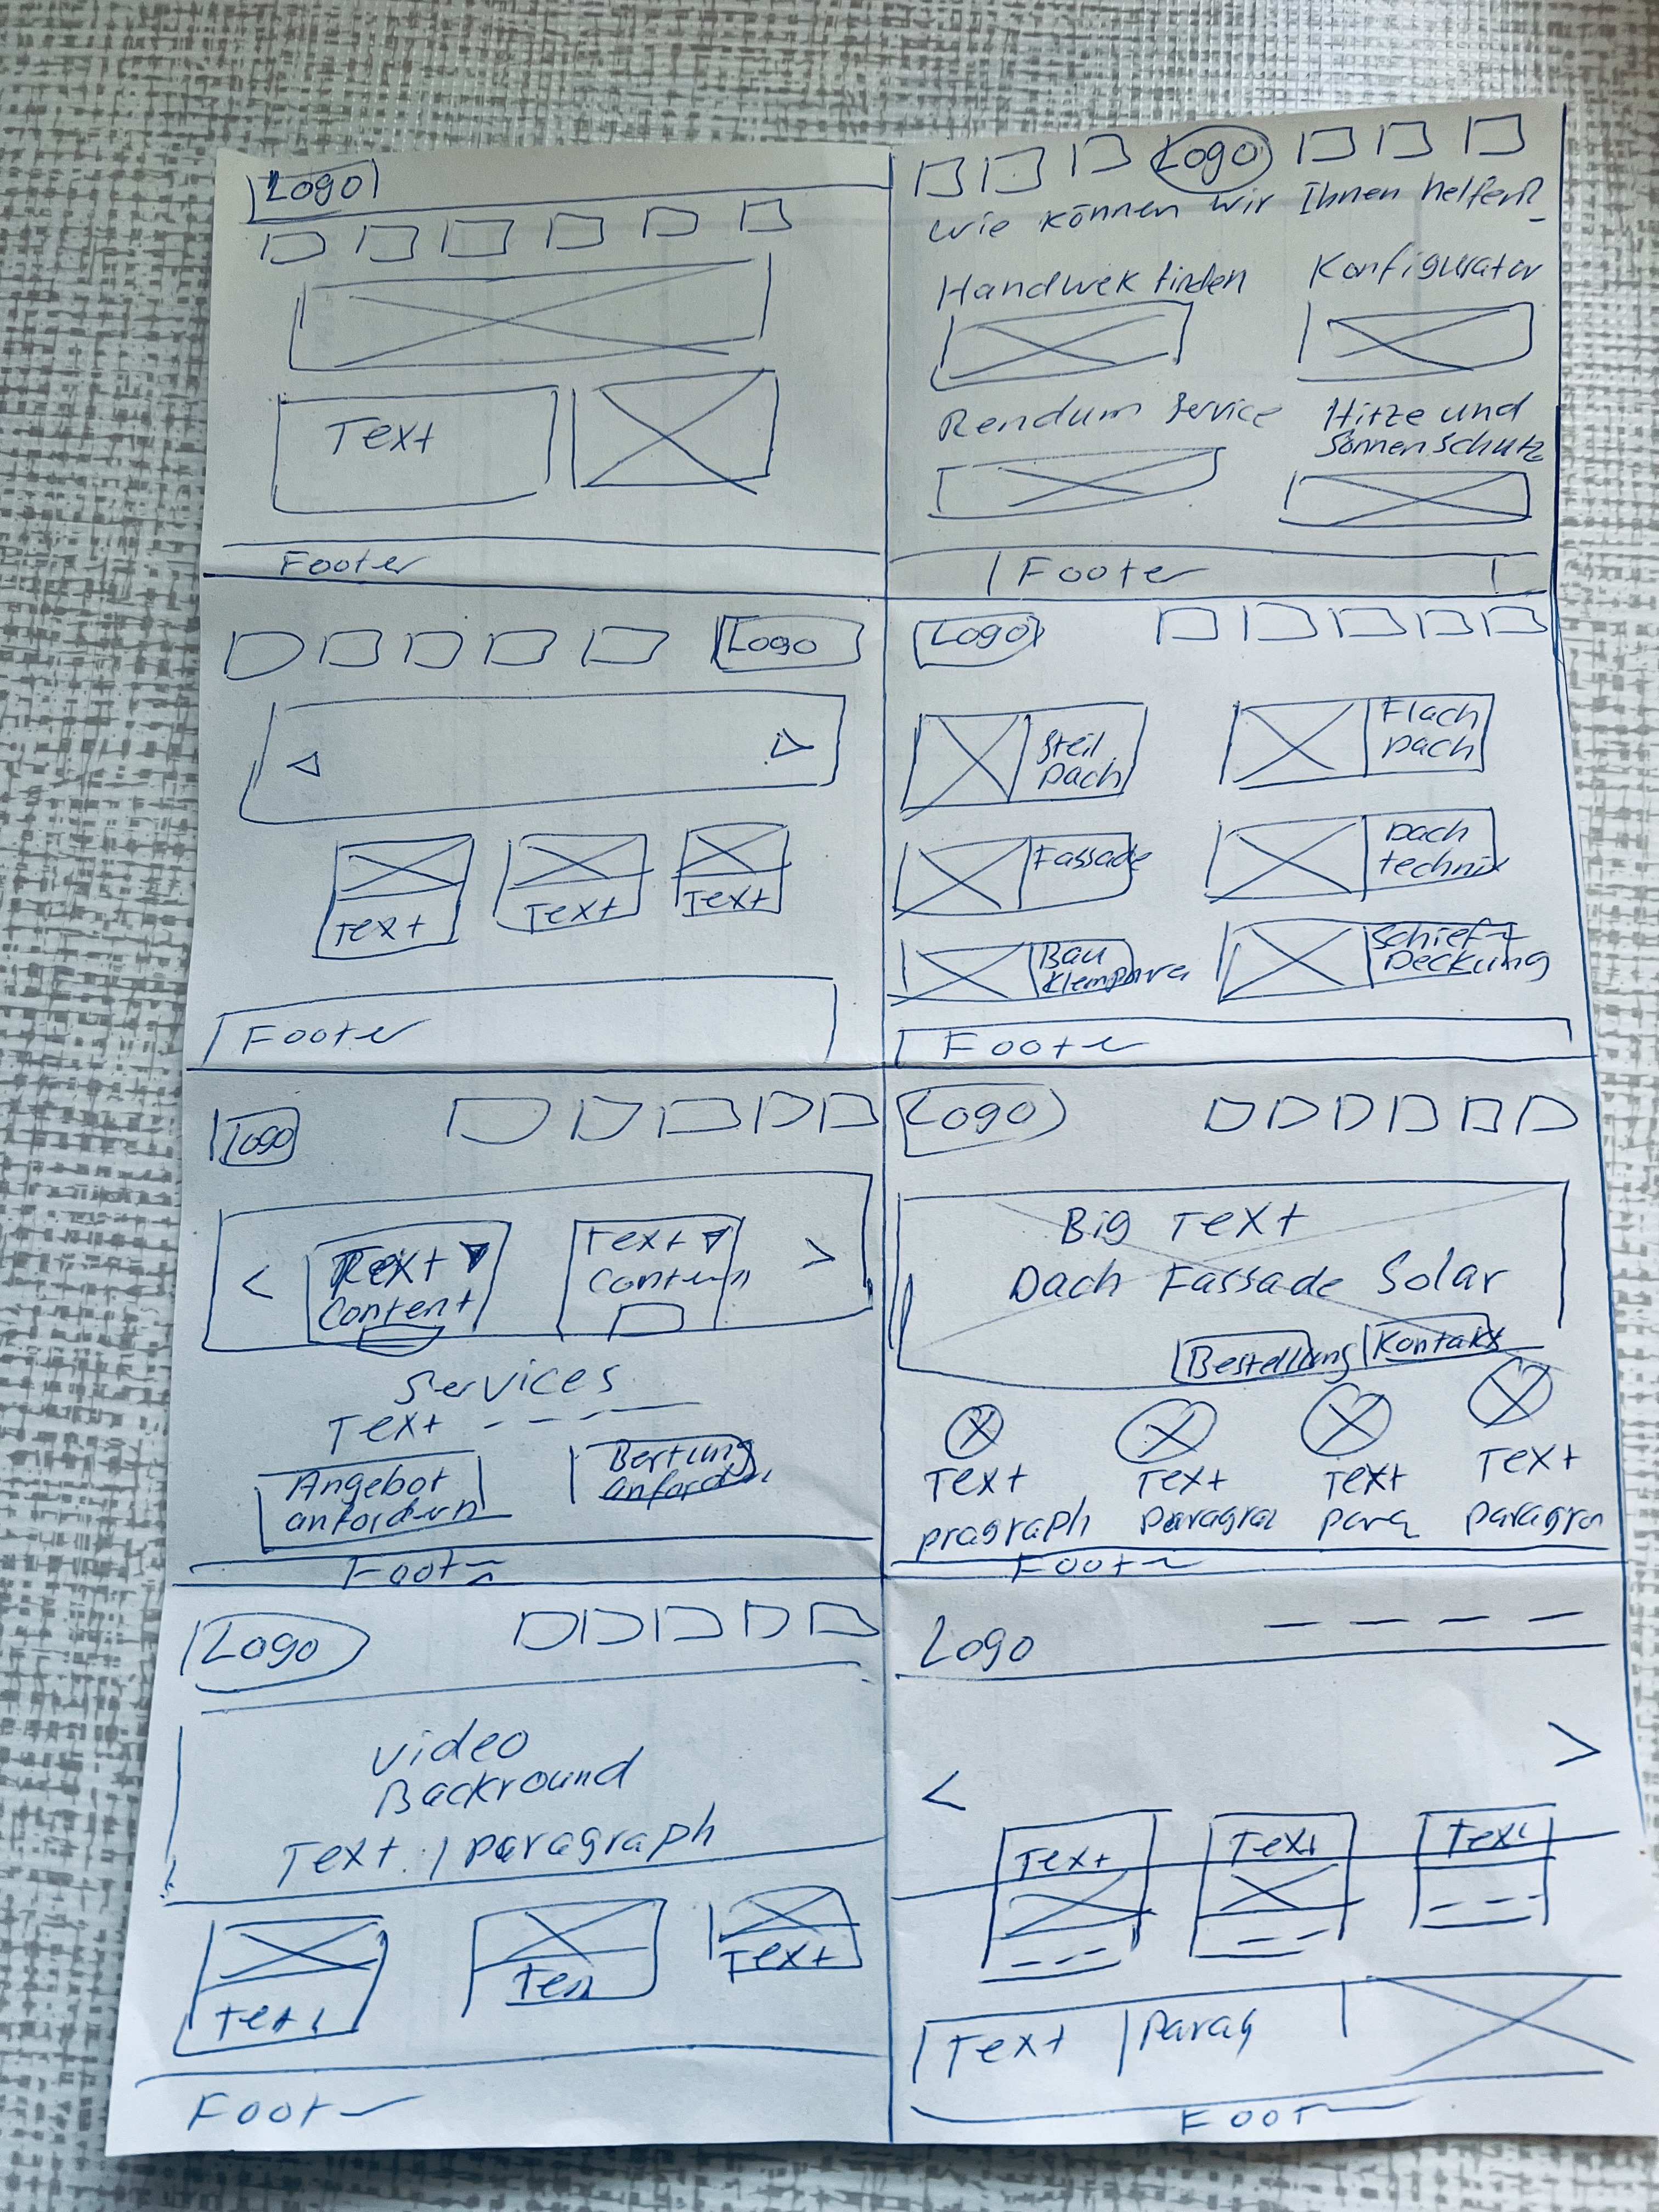 Logo
Text
Footer
Logo
Wie können wir Ihnen helfen?
Handwek finden
Konfigurator
Rendum Service
Hitze und
Sonnenschutz
Footer
Logo
Text
Text
Text
Footer
Logo
Steil
Dach
Flach
Dach
Fassade
Dach
technik
Bau
Schief
Deckung
Footer
Logo
Text
Content
Text
Content
Services
Text
Angebot
anfordern
Bertung
anfordern
Footer
Logo
Big Text
Dach Fassade Solar
Bestellung
Kontakt
Text
Text
Text
Text
pragraph
Paragra
para
paragra
Footer
Logo
video
Backround
Text / paragraph
Text
Text
Text
Footer
Logo
Text
Text
Text
Text
Parag
Footer